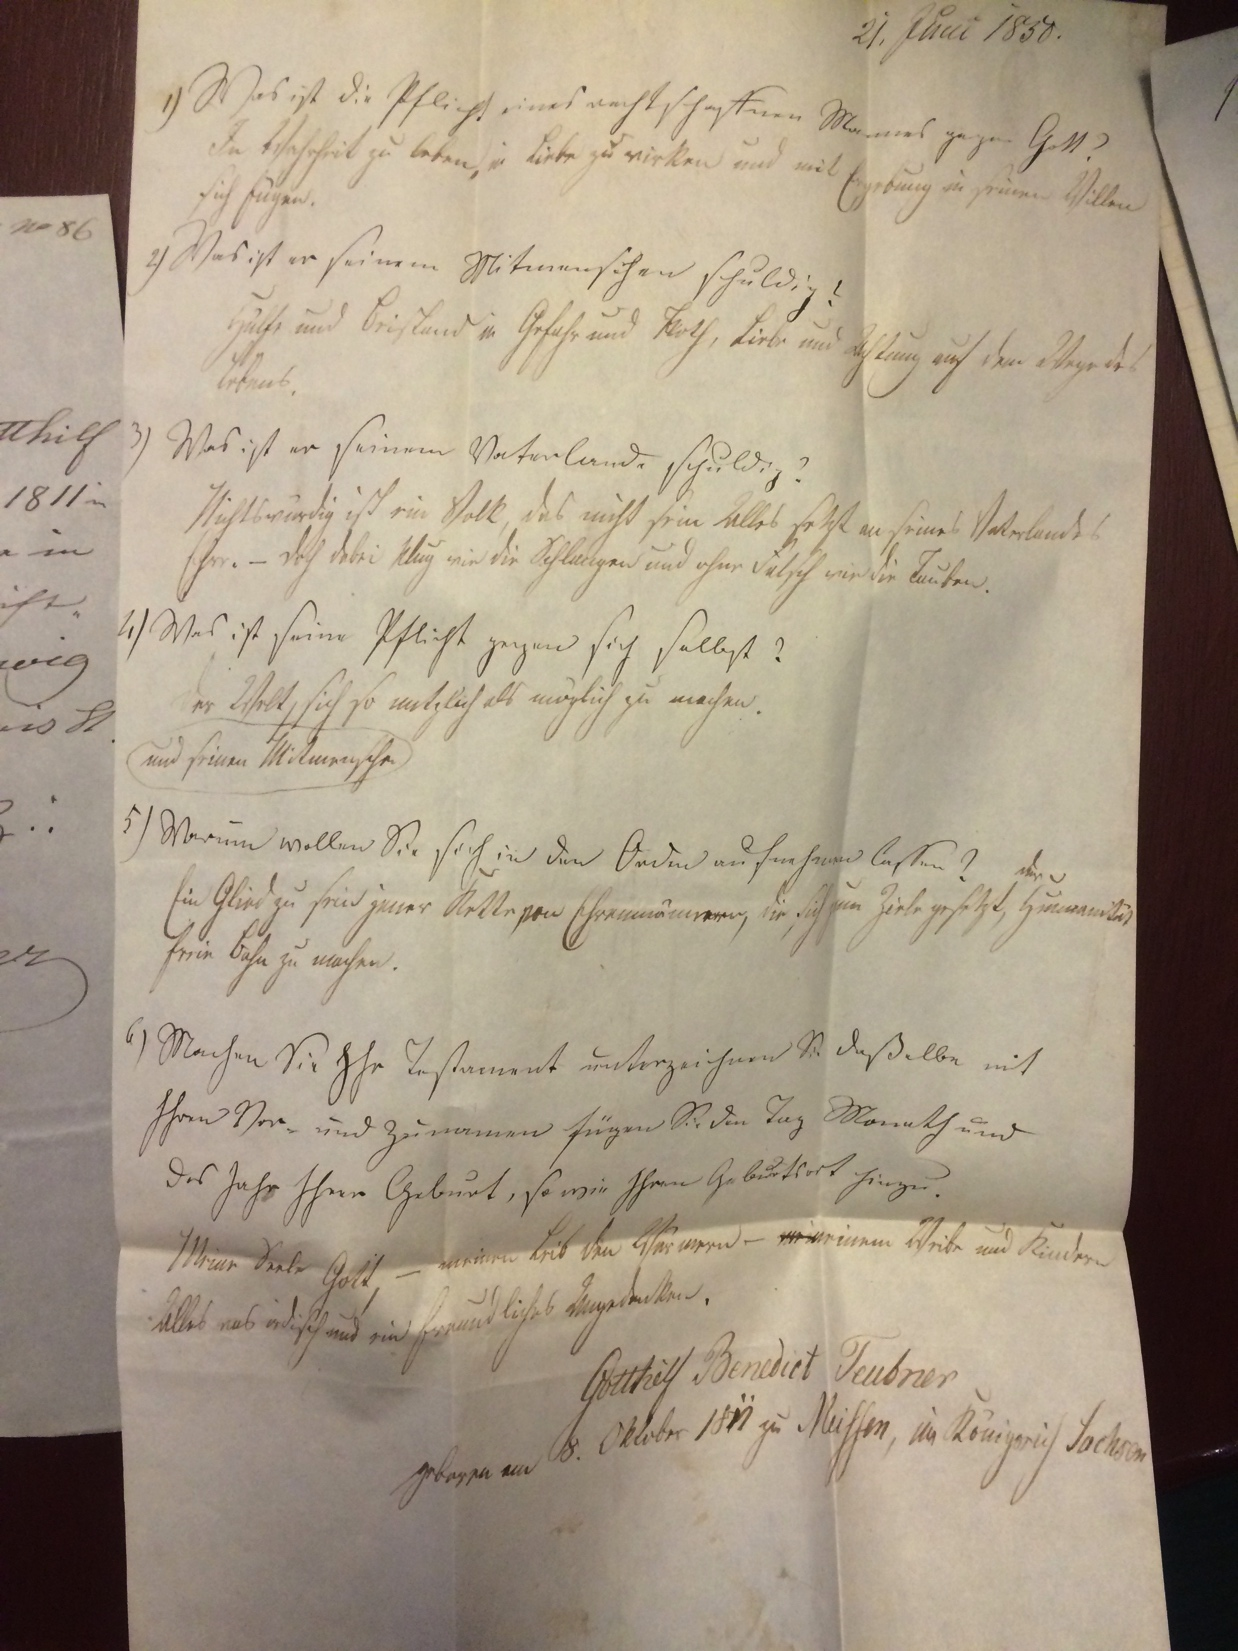 21. Juni 1850.
1) Was ist die Pflicht eines rechtschaffnen Mannes gegen Gott?
In Wahrheit zu leben, in Liebe zu wirken und mit Ergebung in seinen Willen
sich fügen.
2) Was ist er seinem Mitmenschen schuldig?
Hülfe und Beistand in Gefahr und Noth, Liebe und Achtung auf dem Wege des
Lebens.
3) Was ist er seinem Vaterlande schuldig?
Nichtswürdig ist ein Volk, das nicht sein Alles setzt an seines Vaterlandes
Ehre. – Doch dabei klug wie die Schlangen und ohne Falsch wie die Tauben.
4) Was ist seine Pflicht gegen sich selbst?
Der Welt, sich so nützlich als möglich zu machen.
und seinen Mitmenschen
5) Warum wollen Sie sich in den Orden aufnehmen lassen?
der
Ein Glied zu sein jener Kette von Ehrenmännern, die sich zum Ziele gesetzt, Humanität
freie Bahn zu machen.
6) Machen Sie Ihr Testament unterzeichnen Sie daßelbe mit
Ihren Vor- und Zunamen fügen Sie den Tag Monath und
das Jahr Ihrer Geburt, so wie Ihren Geburtsort hinzu.
Meine Seele Gott, – meinen Leib den Würmern – meinem Weibe und Kindern
Alles was irdisch und ein freundliches Angedenken.
Gotthilf Benedict Teubner
geboren am 8. Oktober 1811 zu Meissen, im Königreich Sachsen
no 86
tthilf
1811 in
in
wig